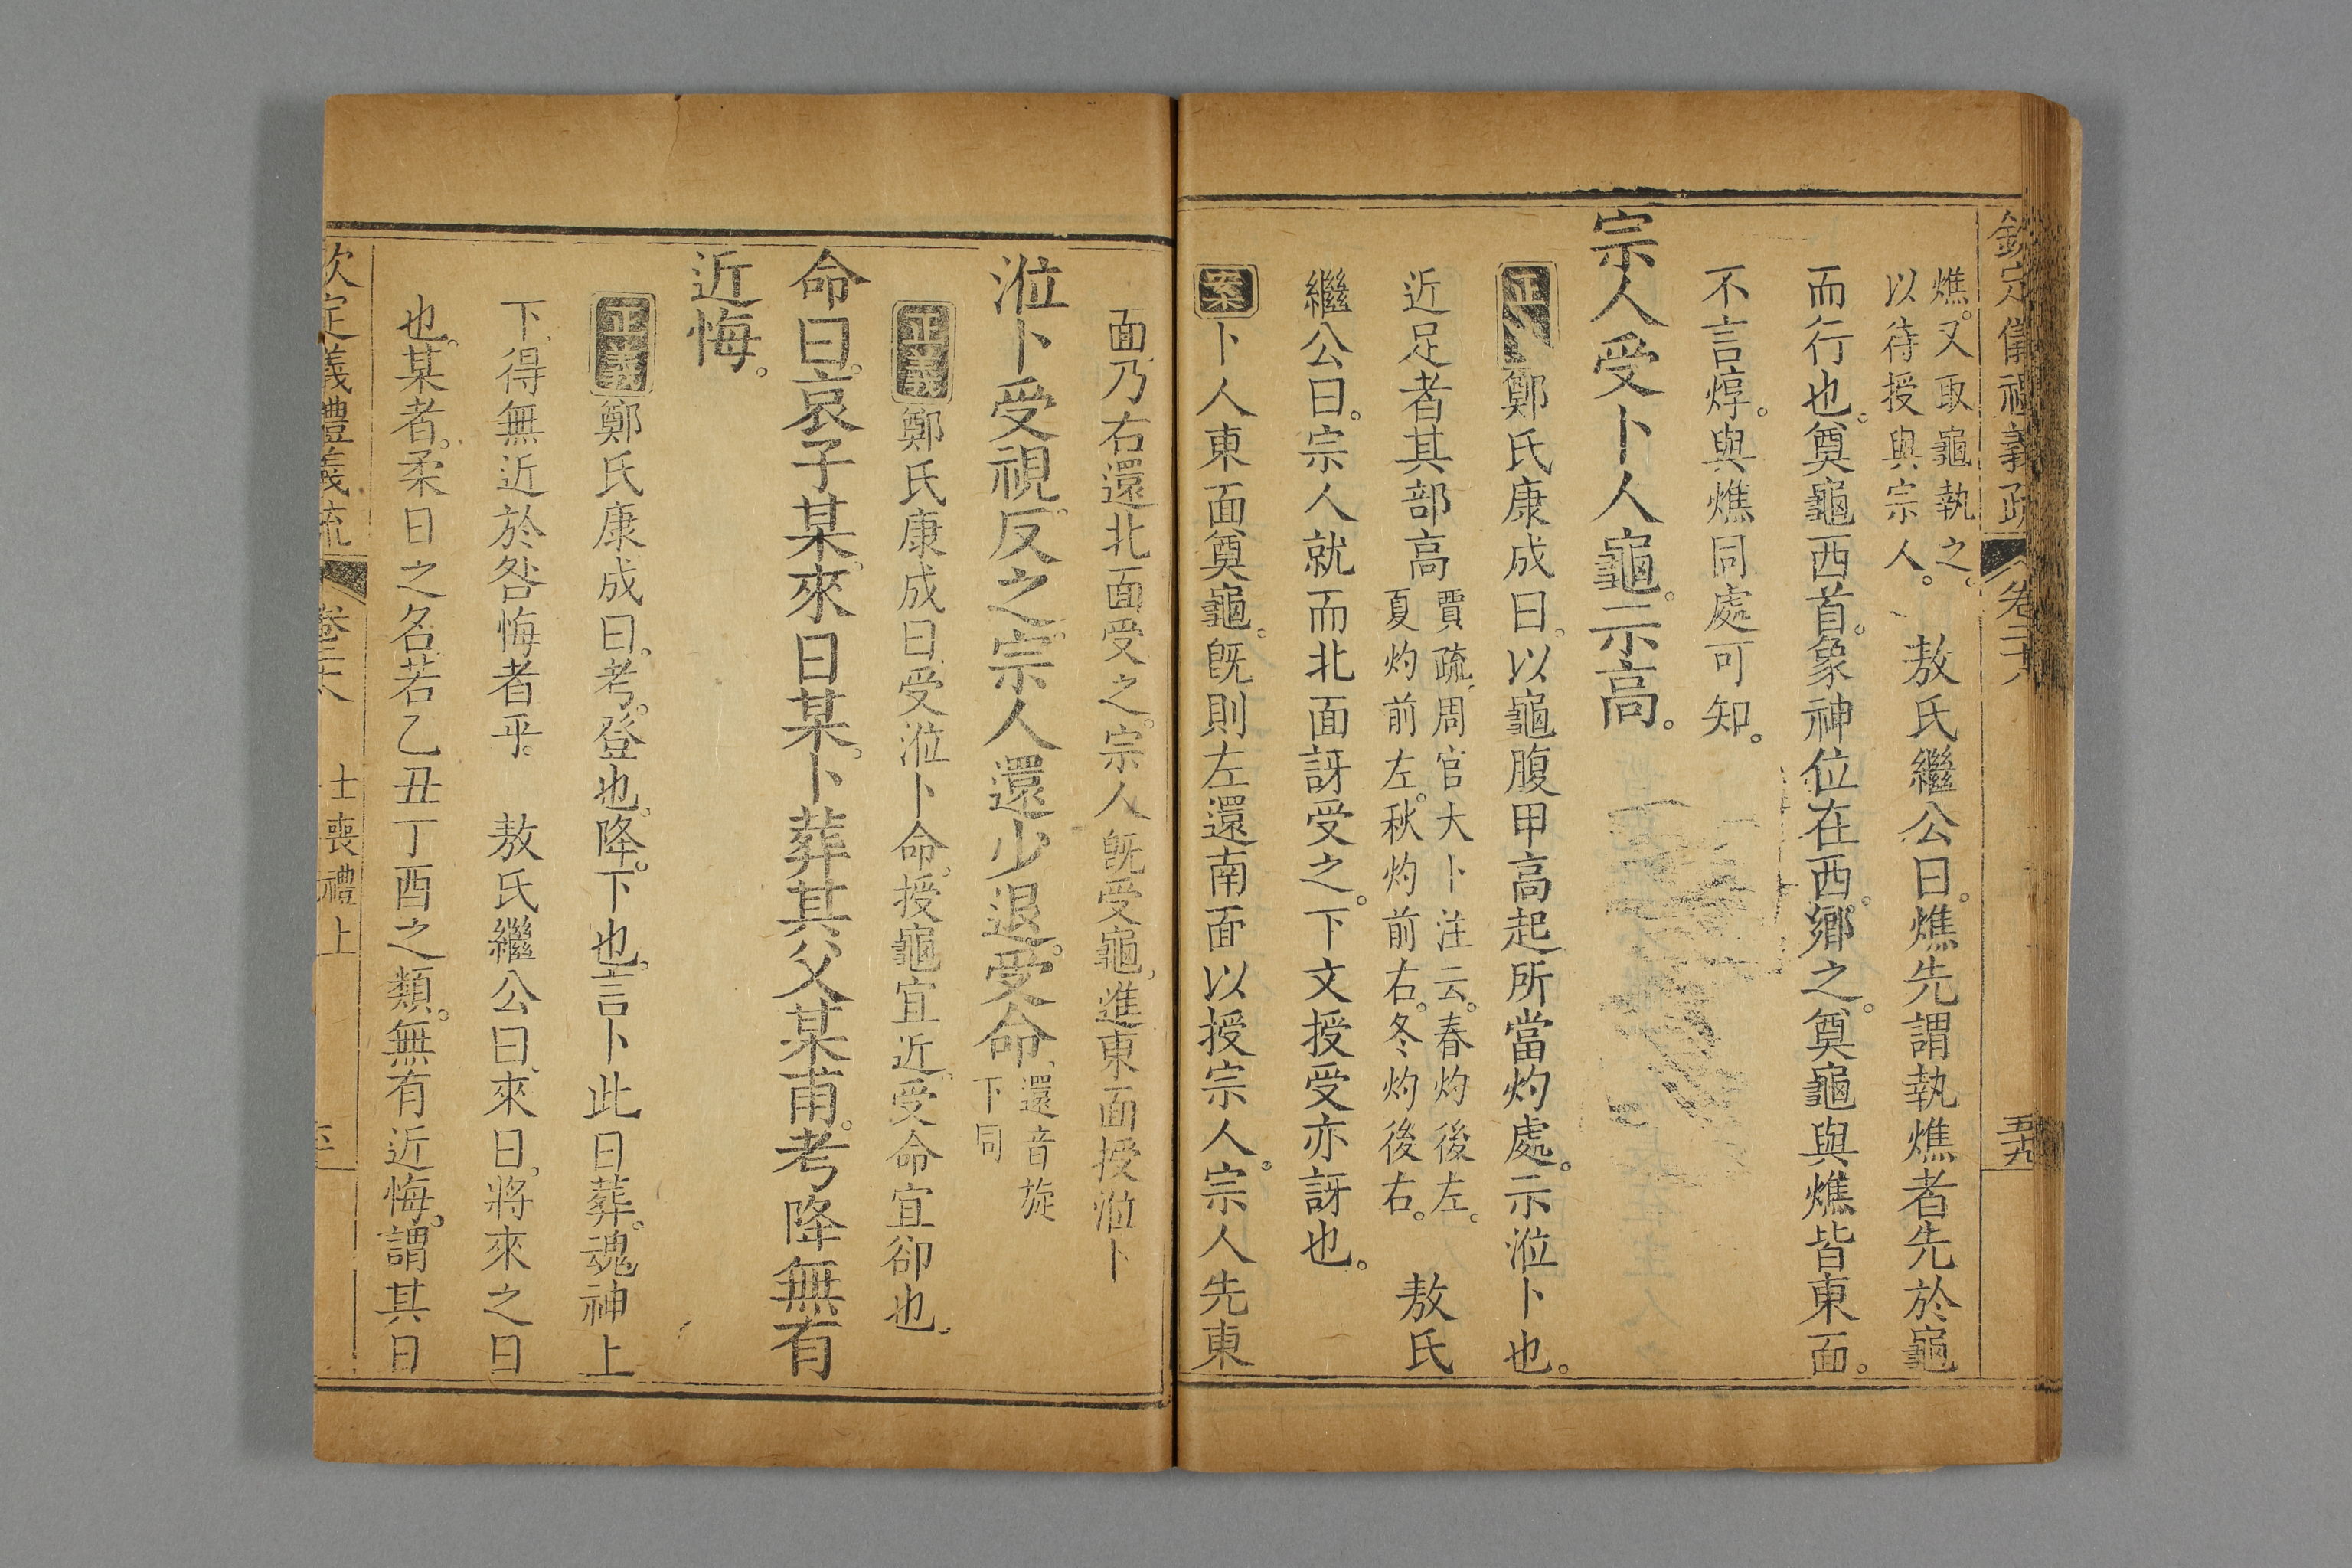 欽定儀禮義疏 卷二十八 五九
燋。又取龜執之。
以待授與宗人。
敖氏繼公曰。燋先謂執燋者先於龜
而行也。奠龜西首。象神位在西。鄉之。奠龜與燋皆東面。
不言焞。與燋同處可知。
宗人受卜人龜。示高。
正義 鄭氏康成曰。以龜腹甲高起所當灼處。示涖卜也。
近足者其部高
賈疏。周官大卜注云。春灼後左。
夏灼前左。秋灼前右。冬灼後右。
敖氏
繼公曰。宗人就而北面訝受之。下文授受亦訝也。
案 卜人東面奠龜。旣則左還南面以授宗人。宗人先東
面乃右還北面受之。宗人旣受龜。進東面授涖卜
涖卜受視反之。宗人還少退。受命。
還音旋
下同
正義 鄭氏康成曰受涖卜命。授龜宜近。受命宜卻也。
命曰。哀子某。來日某。卜葬其父某甫。考降無有
近悔。
正義 鄭氏康成曰。考。登也。降。下也。言卜此日葬。魂神上
下得無近於咎悔者乎。 敖氏繼公曰。來日。將來之日
也。某者。柔日之名若乙丑丁酉之類。無有近悔。謂其日
欽定儀禮義疏 卷二十八 士喪禮上